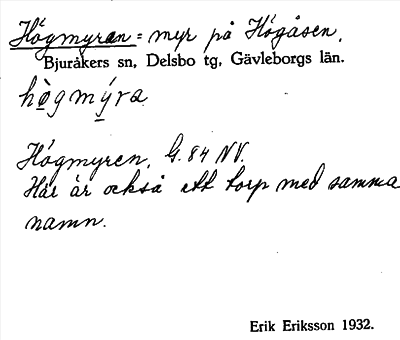 Högmyran = myr på Högåsen.
Bjuråkers sn, Delsbo tg, Gävleborgs län.
hògmýra
Högmyren, G. 84 NV.
Här är också ett torp med samma
namn.
Erik Eriksson 1932.